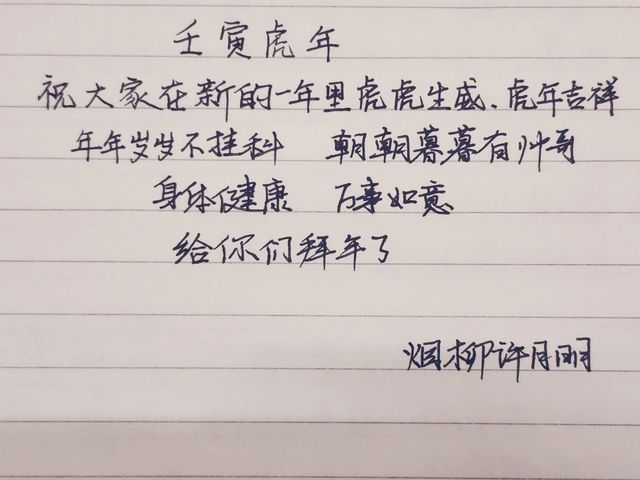 壬寅虎年
祝大家在新的一年里虎虎生盛、虎年吉祥
年年岁岁不挂科 朝朝暮暮有帅哥
身体健康 万事如意
给你们拜年了
烟柳许月明